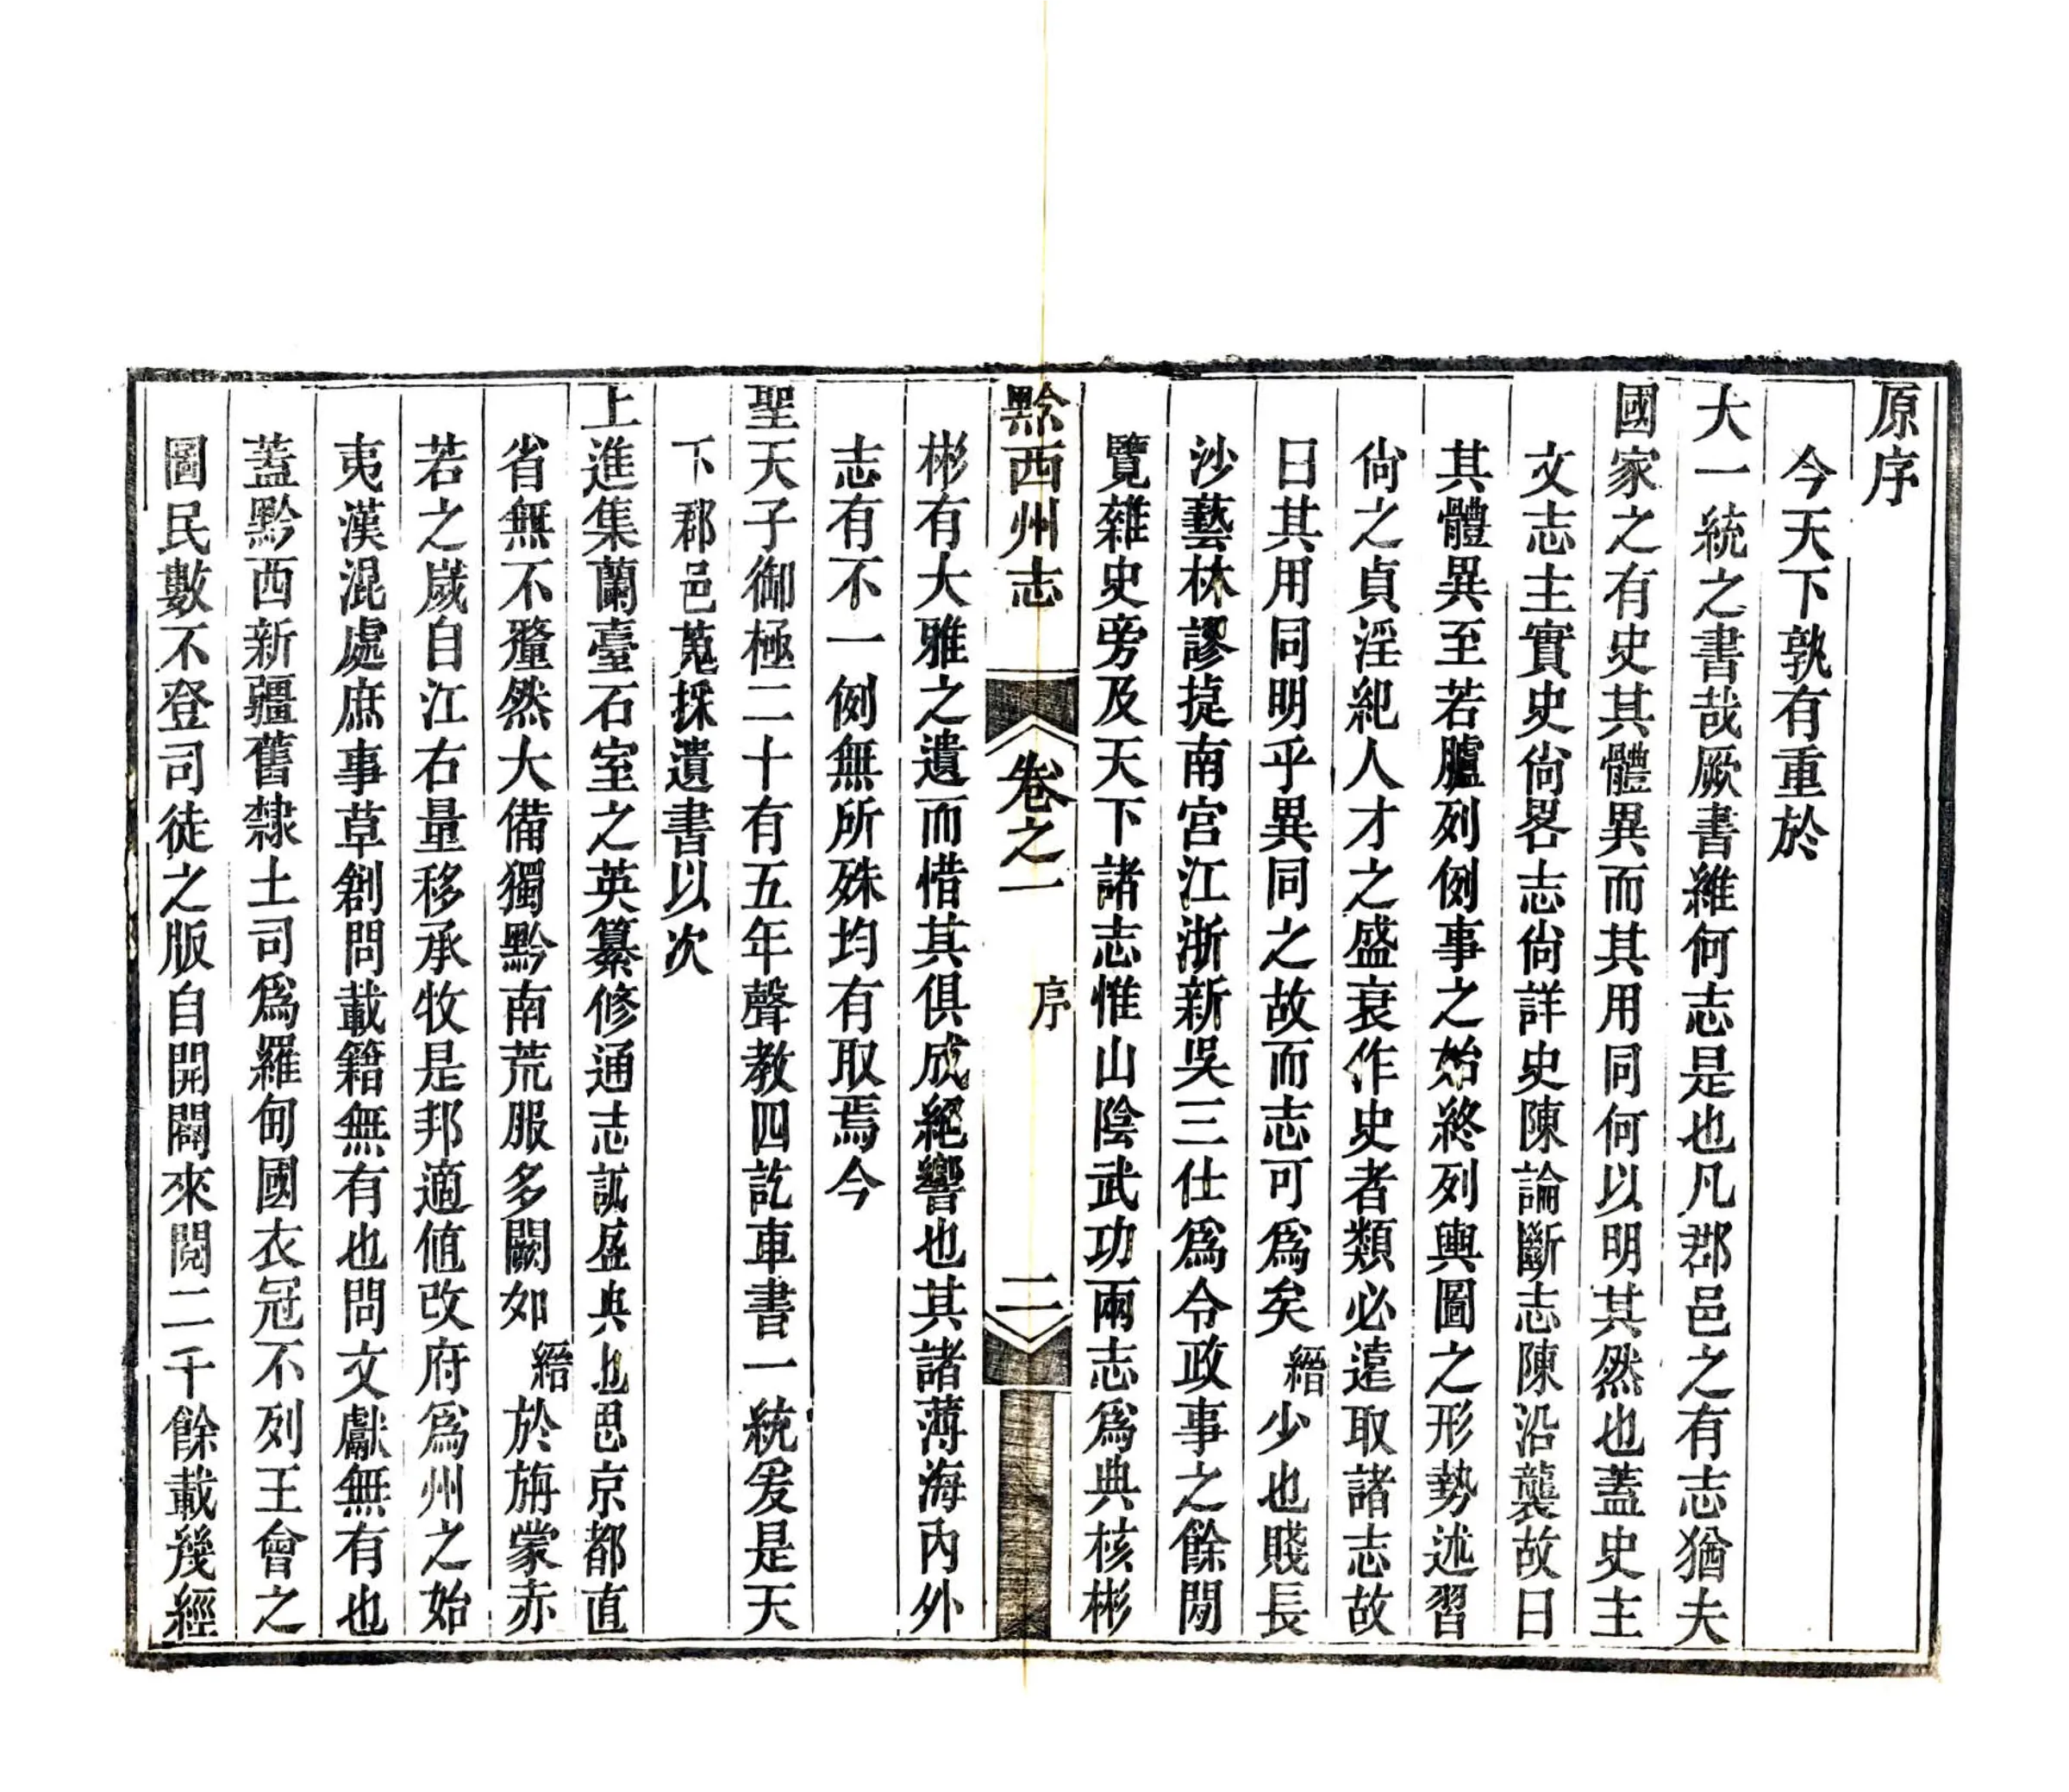 原序
今天下孰有重於
大一統之書哉厥書維何志是也凡郡邑之有志猶夫
國家之有史其體異而其用同何以明其然也蓋史主
文志主實史尙畧志尙詳史陳論斷志陳沿襲故曰
其體異至若臚列例事之始終列輿圖之形勢述習
尙之貞淫紀人才之盛衰作史者類必遠取諸志故
曰其用同明乎異同之故而志可爲矣縉少也賤長
沙藝林謬掟南宮江浙新吳三仕爲令政事之餘閒
覽雜史旁及天下諸志惟山陰武功兩志爲典核彬
黔西州志 卷之一 序 二
彬有大雅之遺而惜其俱成絕響也其諸薄海內外
志有不一例無所殊均有取焉今
聖天子御極二十有五年聲教四訖車書一統爰是天
下郡邑蒐採遺書以次
上進集蘭臺石室之英纂修通志誠盛典也思京都直
省無不釐然大備獨黔南荒服多闕如縉於旃蒙赤
若之歲自江右量移承牧是邦適值改府爲州之始
夷漢混處庶事草創問載籍無有也問文獻無有也
蓋黔西新疆舊隸土司爲羅甸國衣冠不列王會之
圖民數不登司徒之版自開闢來閱二千餘載幾經